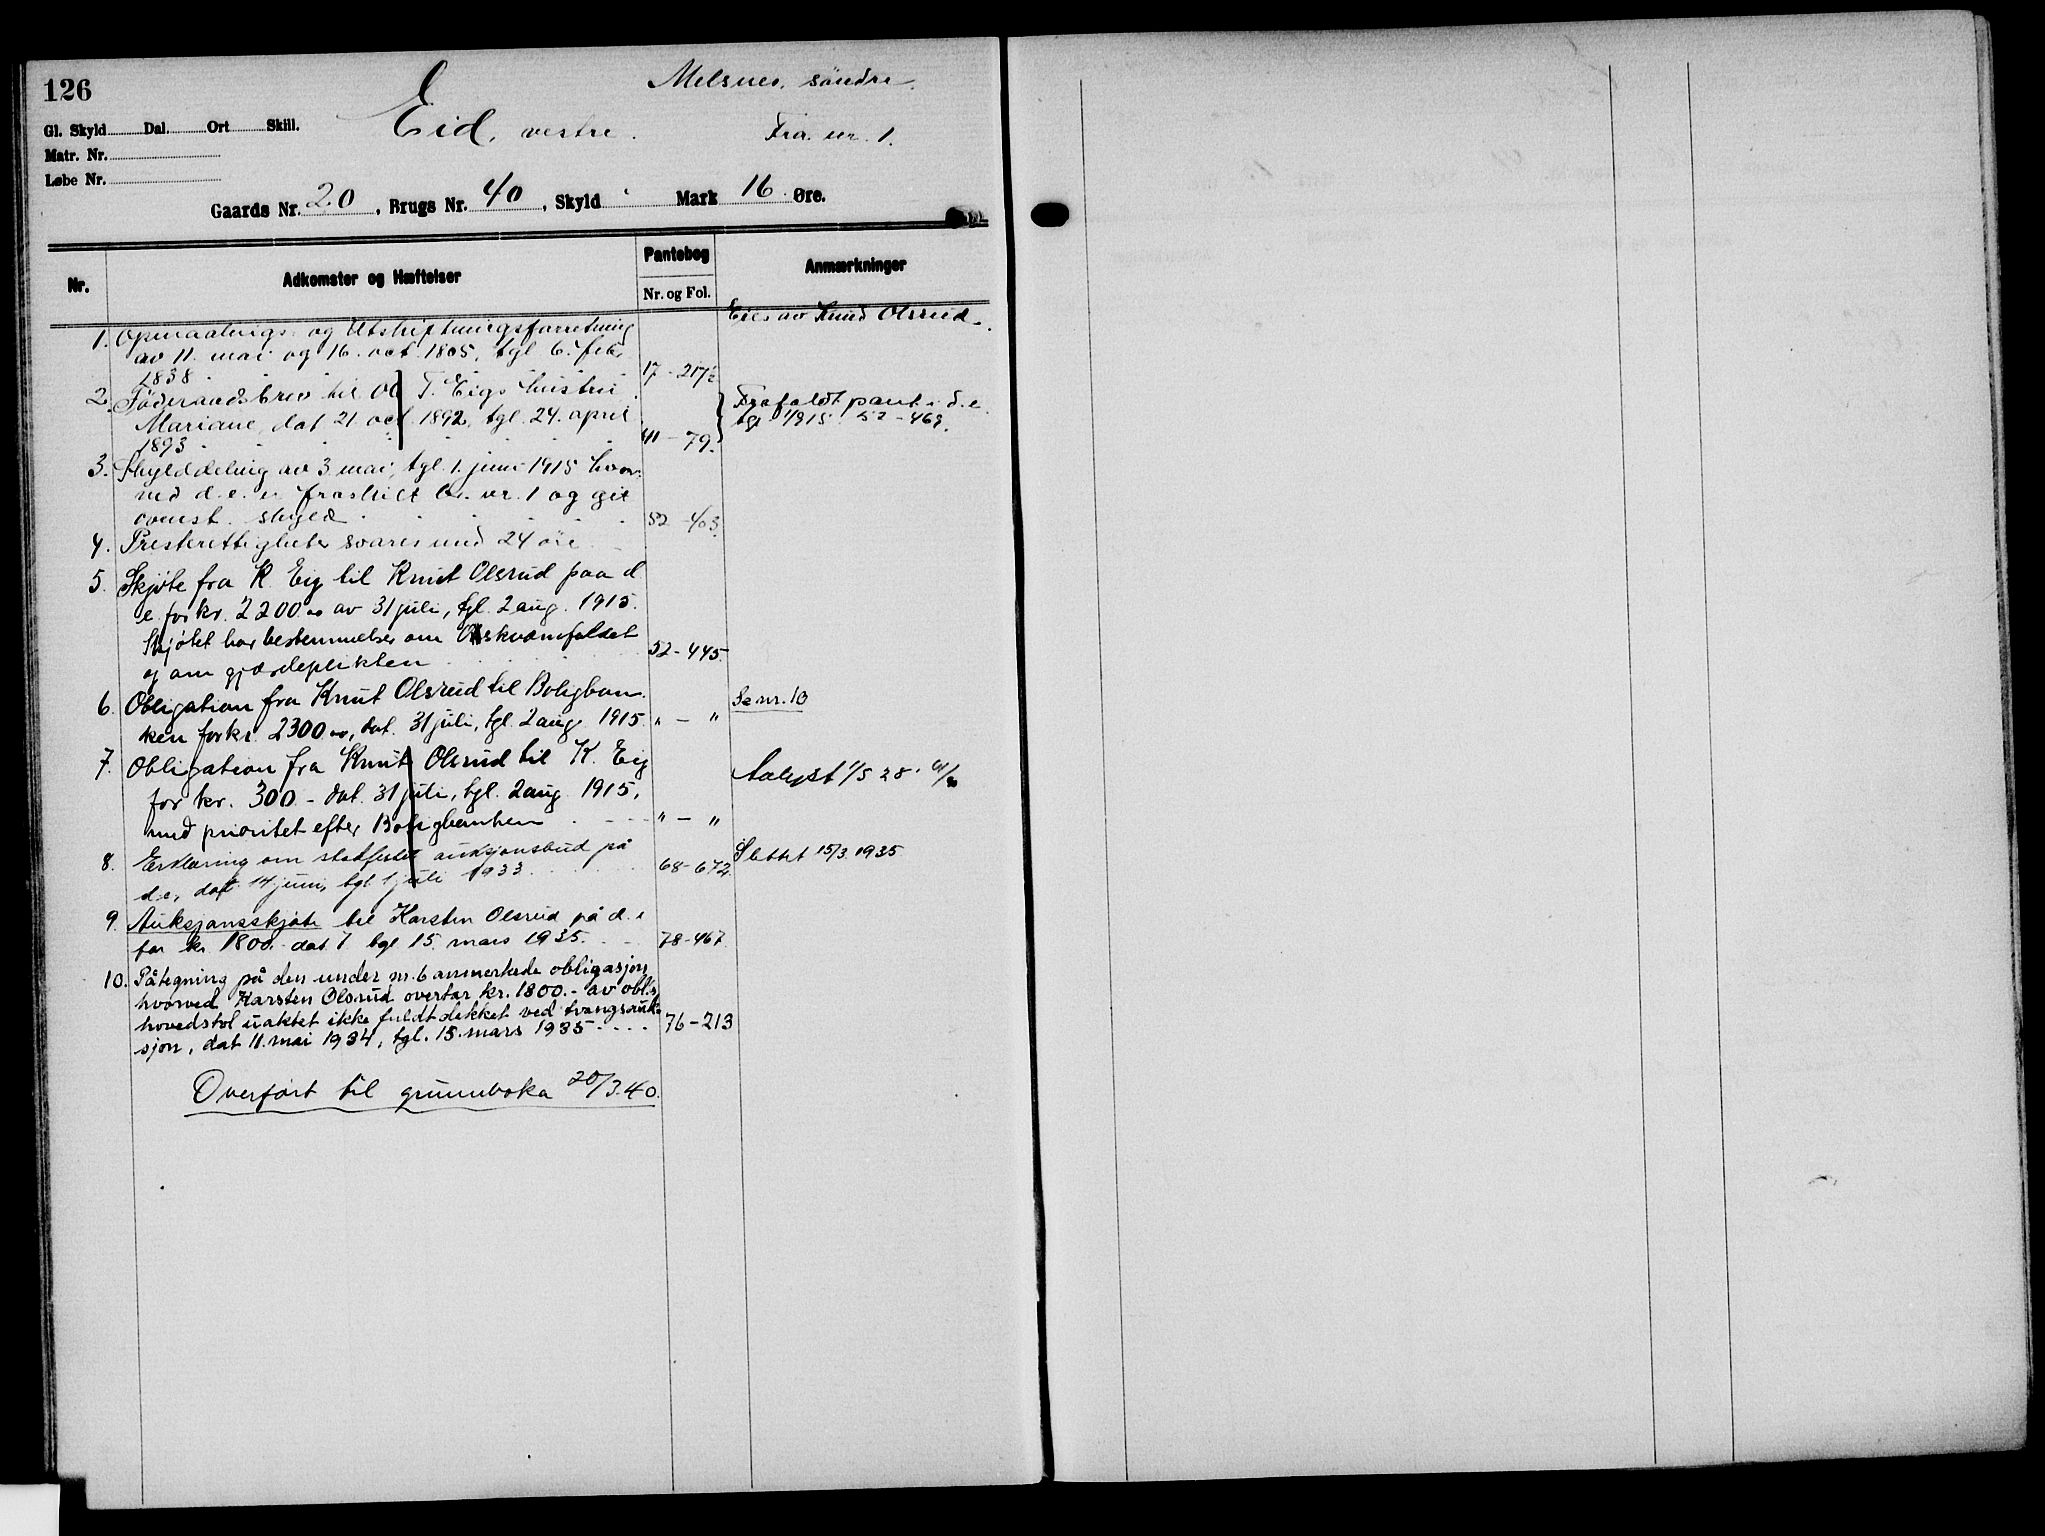 126
Eid, vestre.
Melsnes, söndre.
Fra nr. 1.
Gl. Skyld Dal. Ort Skill.
Matr. Nr.
Løbe Nr.
Gaards Nr. 20, Brugs Nr. 40, Skyld Mark 16 Øre.
Nr. Adkomster og Hæftelser Pantebog Nr. og Fol. Anmærkninger
Eies av Knud Olsrud.
1. Opmaalings- og Utskiftningsforretning
av 11. mai og 16. oct. 1805, tgl 6. feb.
1838 17 - 217½
2. Föderaadsbrev til Ol T. Eigs hustru
Mariane, dat 21 oct. 1892, tgl. 24. april
1893 41 - 79.
Frafaldt pant i d.e.
tgl 1/9 15 52-469.
3. Skylddeling av 3 mai, tgl. 1. juni 1915 hvor-
ved d.e. er fraskilt br. nr. 1 og git
ovenst. skyld 52 - 403.
4. Presterettigheter svares med 24 øre
5. Skjøte fra K. Eig til Knut Olsrud paa d
e. for kr. 2200 00 av 31 juli, tgl. 2 aug. 1915.
Skjøtet har bestemmelser om
og om gjærdeplikten 52 - 445.
6. Obligation fra Knut Olsrud til Boligban-
ken for kr. 2300 00, dat. 31 juli, tgl. 2 aug. 1915. " - "
Se nr. 10
7. Obligation fra Knut Olsrud til K. Eig
for kr. 300.- dat. 31 juli, tgl. 2 aug. 1915,
med prioritet efter Boligbanken " - "
Avlyst 1/5 28.
8. Erklæring om stadfestet auksjonsbud på
d.e., dat. 14 juni, tgl 1 juli 1933 68-672.
Slettet 15/3 1935
9. Auksjonsskjøte til Karsten Olsrud på d.e
for kr. 1800.- dat 7 tgl 15. mars 1935. 78-467
10. Påtegning på den under nr. 6 anmerkede obligasjon
hvorved Karsten Olsrud overtar kr. 1800.- av obl.s
hovedstol uaktet ikke fuldt dekket ved tvangsauk-
sjon, dat 11. mai 1934, tgl. 15. mars 1935 76-213
Overført til grunnboka 20/3.40.